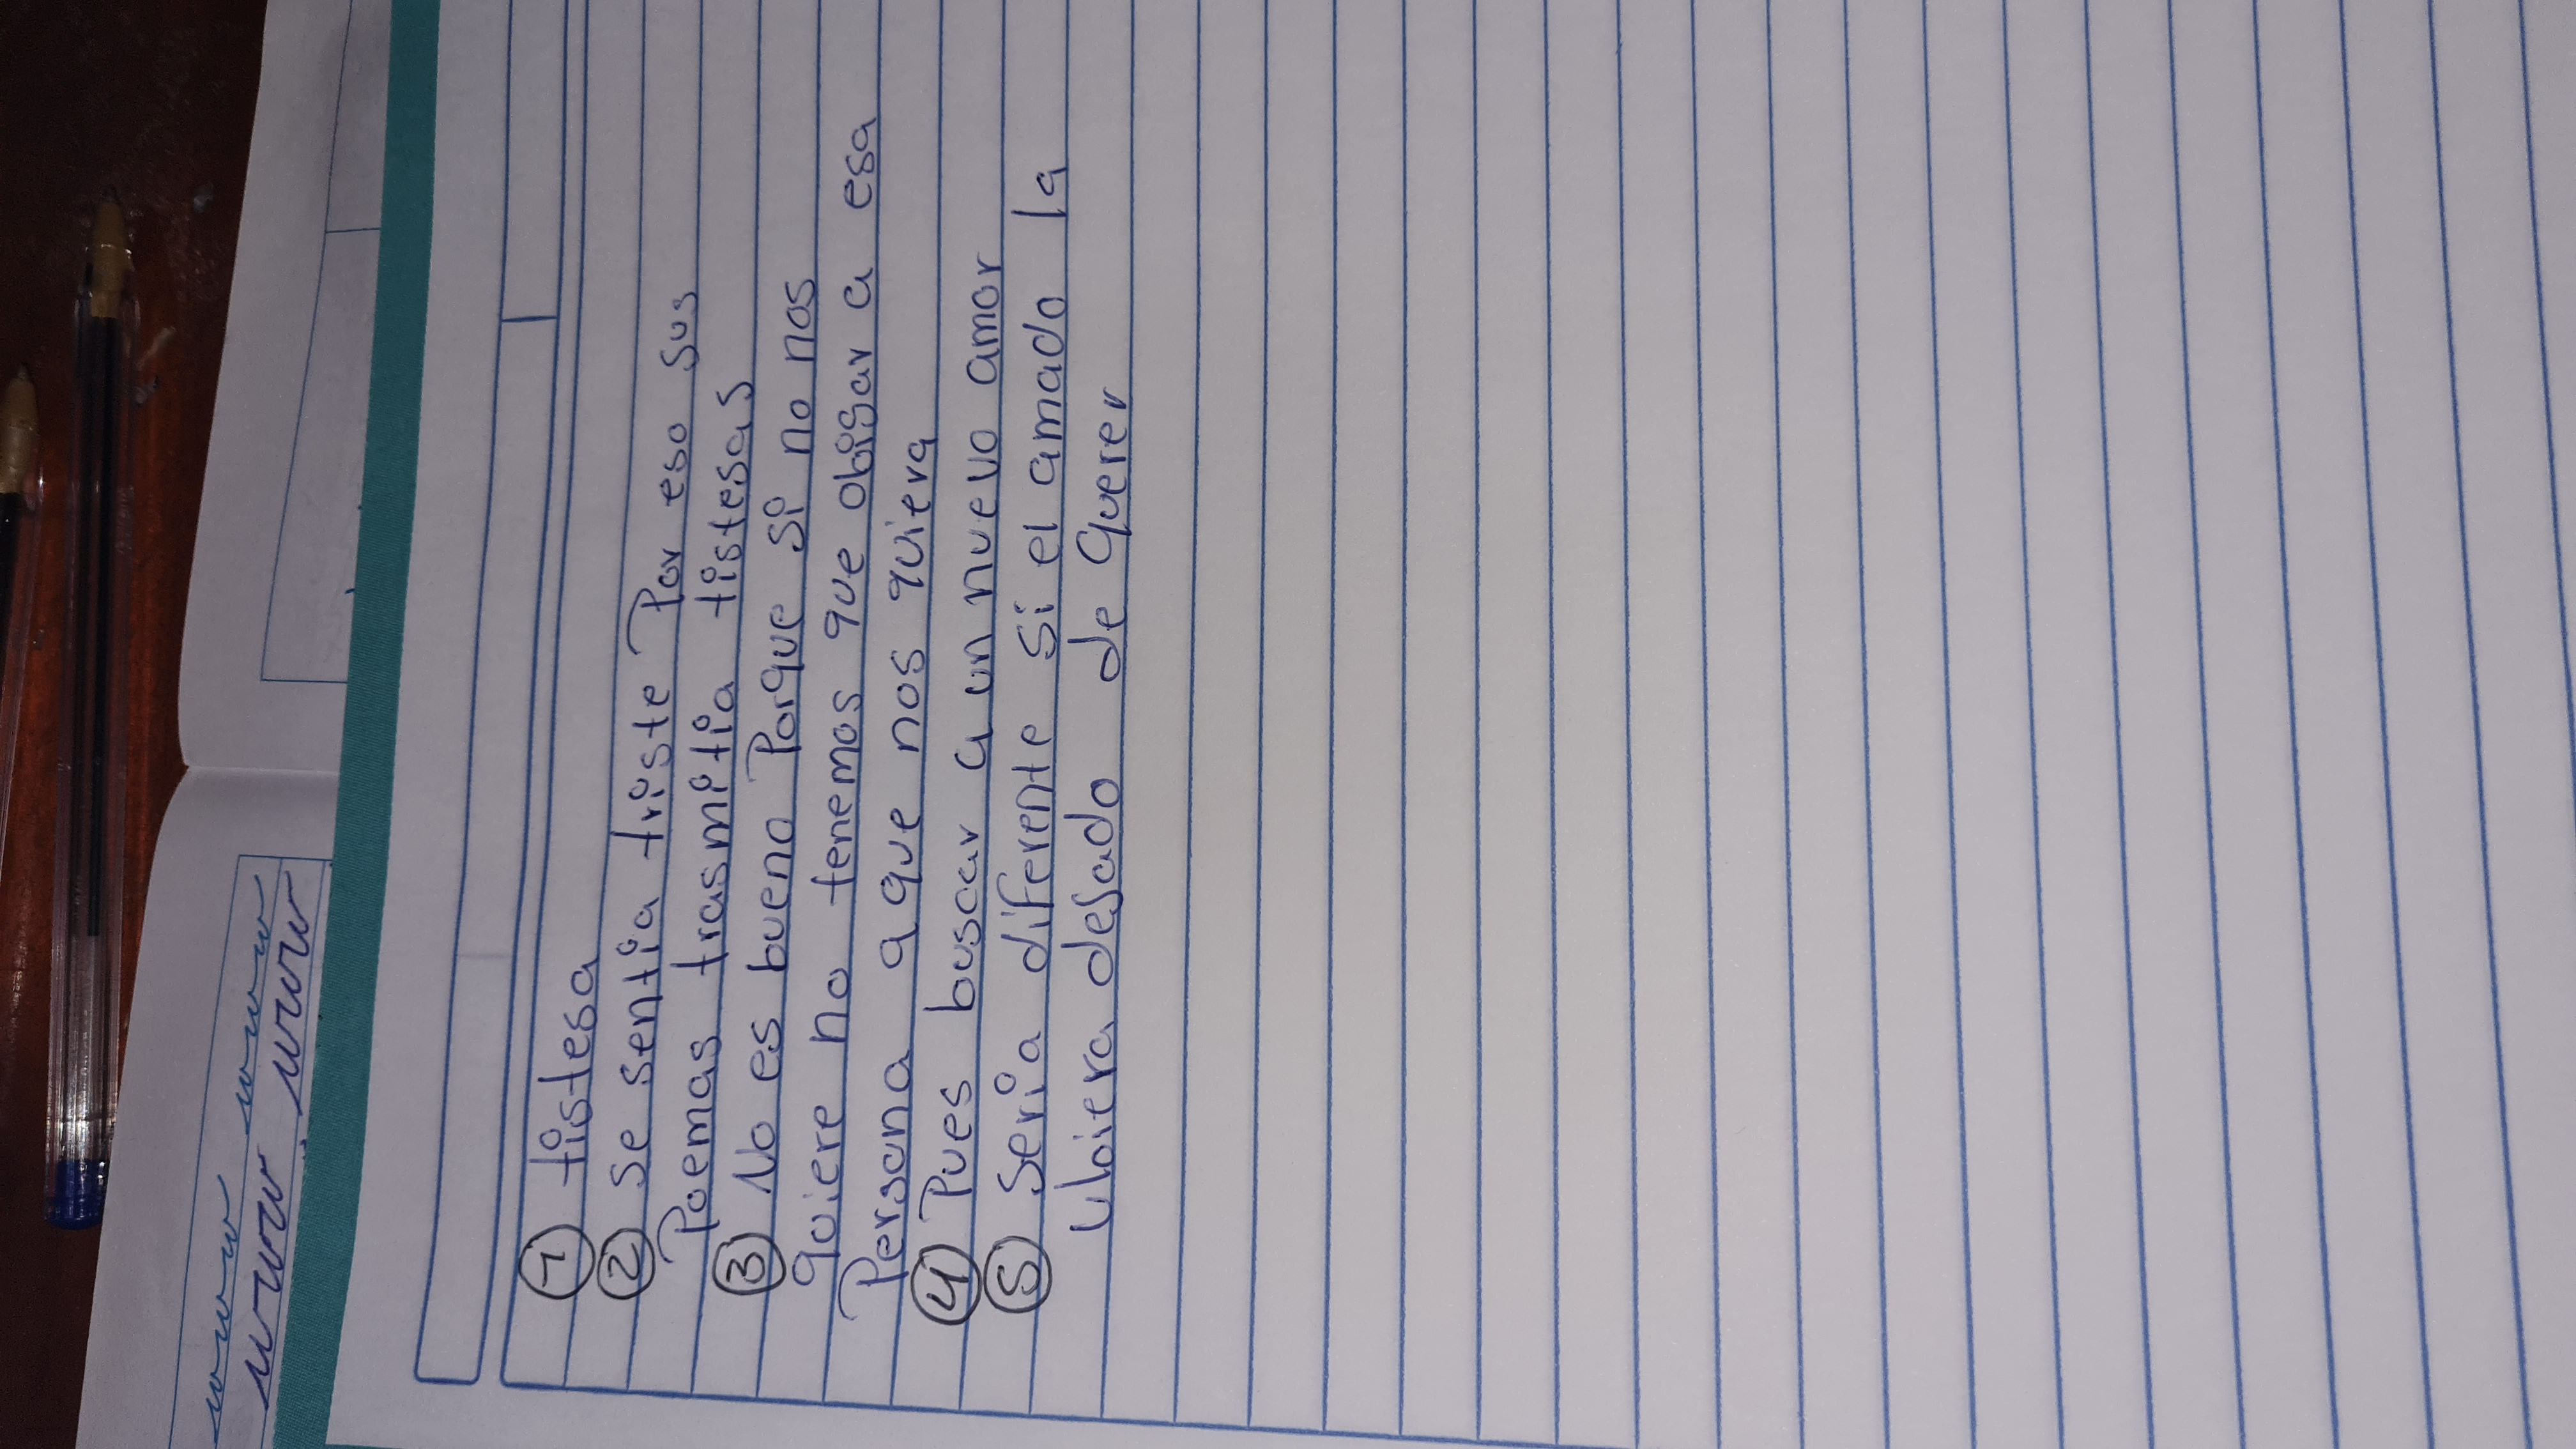 ① tistesa
② se sentia triste Por eso sus
Poemas trasmitia tistesas
③ No es bueno Porque si no nos
quiere no tenemos que obigar a esa
Persona a que nos quiera
④ Pues buscar a un nuevo amor
⑤ Seria diferente si el amado la
ubiera desado de querer